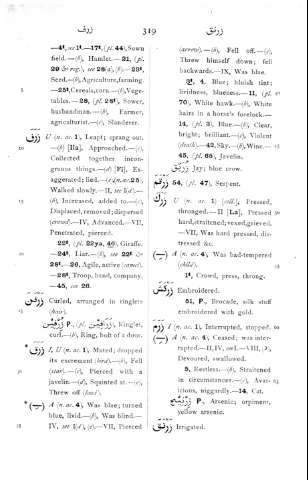 زرف
319
زرنق
—4¹, see 1¹.—17¹, (pl. 44), Sown
field.—(b), Hamlet.—21, (pl.
Seed.—(b), Agriculture, farming.
—25¹, Cereals, corn.—(b), Vege-
tables.—28, (pl. 28¹), Sower,
husbandman.—(b), Farmer,
agriculturist.—(c), Slanderer.
زرف U (n. ac. 1), Leapt; sprang out.
—(b) [Ila], Approached.—(c),
Collected together incon-
gruous things.—(d) [Fi], Ex-
aggerated; lied.—(e) (n. ac. 25),
Walked slowly.—II, see 1(d).—
(b), Increased, added to.—(c),
Displaced, removed; dispersed
(crowd).—IV, Advanced.—VII,
Penetrated, pierced.
22², (pl. 22ya, 46), Giraffe.
—24², Liar.—(b), see 22² &
28².—26, Agile, active (camel).
—28², Troop, band, company.
—45, see 26.
زرفن Curled, arranged in ringlets
(hair).
زرفين P., Ringlet,
curl.—(b), Ring, bolt of a door.
* زرق I, U (n. ac. 1), Muted; dropped
its excrement (bird).—(b), Fell
(star).—(c), Pierced with a
javelin.—(d), Squinted at.—(e),
Threw off (load).
* (—) A (n. ac. 4), Was blue; turned
blue, livid.—(b), Was blind.—
IV, see 1(d), (e).—VII, Pierced
(arrow).—(b), Fell off.—(c),
Threw himself down; fell
backwards.—IX, Was blue.
4, Blue; bluish tint;
lividness, blueness.—11, (pl.
70), White hawk.—(b), White
hairs in a horse's forelock.—
14, (pl. 3), Blue.—(b), Clear,
bright; brilliant.—(c), Violent
(death).—42, Sky.—(b), Wine.—
45, (pl. 68), Javelin.
زريق Jay; blue crow.
زرقم 54, 47, (pl. 47), Serpent.
زرك U (n. ac. 1) [coll.], Pressed,
thronged.—II [La], Pressed
hard, straitened; vexed, grieved.
—VII, Was hard pressed, dis-
tressed &c.
(—) A (n. ac. 4), Was bad-tempered
(child).
1², Crowd, press, throng.
زركش Embroidered.
51, P., Brocade, silk stuff
embroidered with gold.
زرم I (n. ac. 1), Interrupted, stopped.
(—) A (n. ac. 4), Ceased, was inter-
rupted.—II, IV, see I.—VIII,
Devoured, swallowed.
5, Restless.—(b), Straitened
in circumstances.—(c), Avar-
icious, niggardly.—14, Cat.
زرنيخ P., Arsenic; orpiment,
yellow arsenic.
زرنق Irrigated.